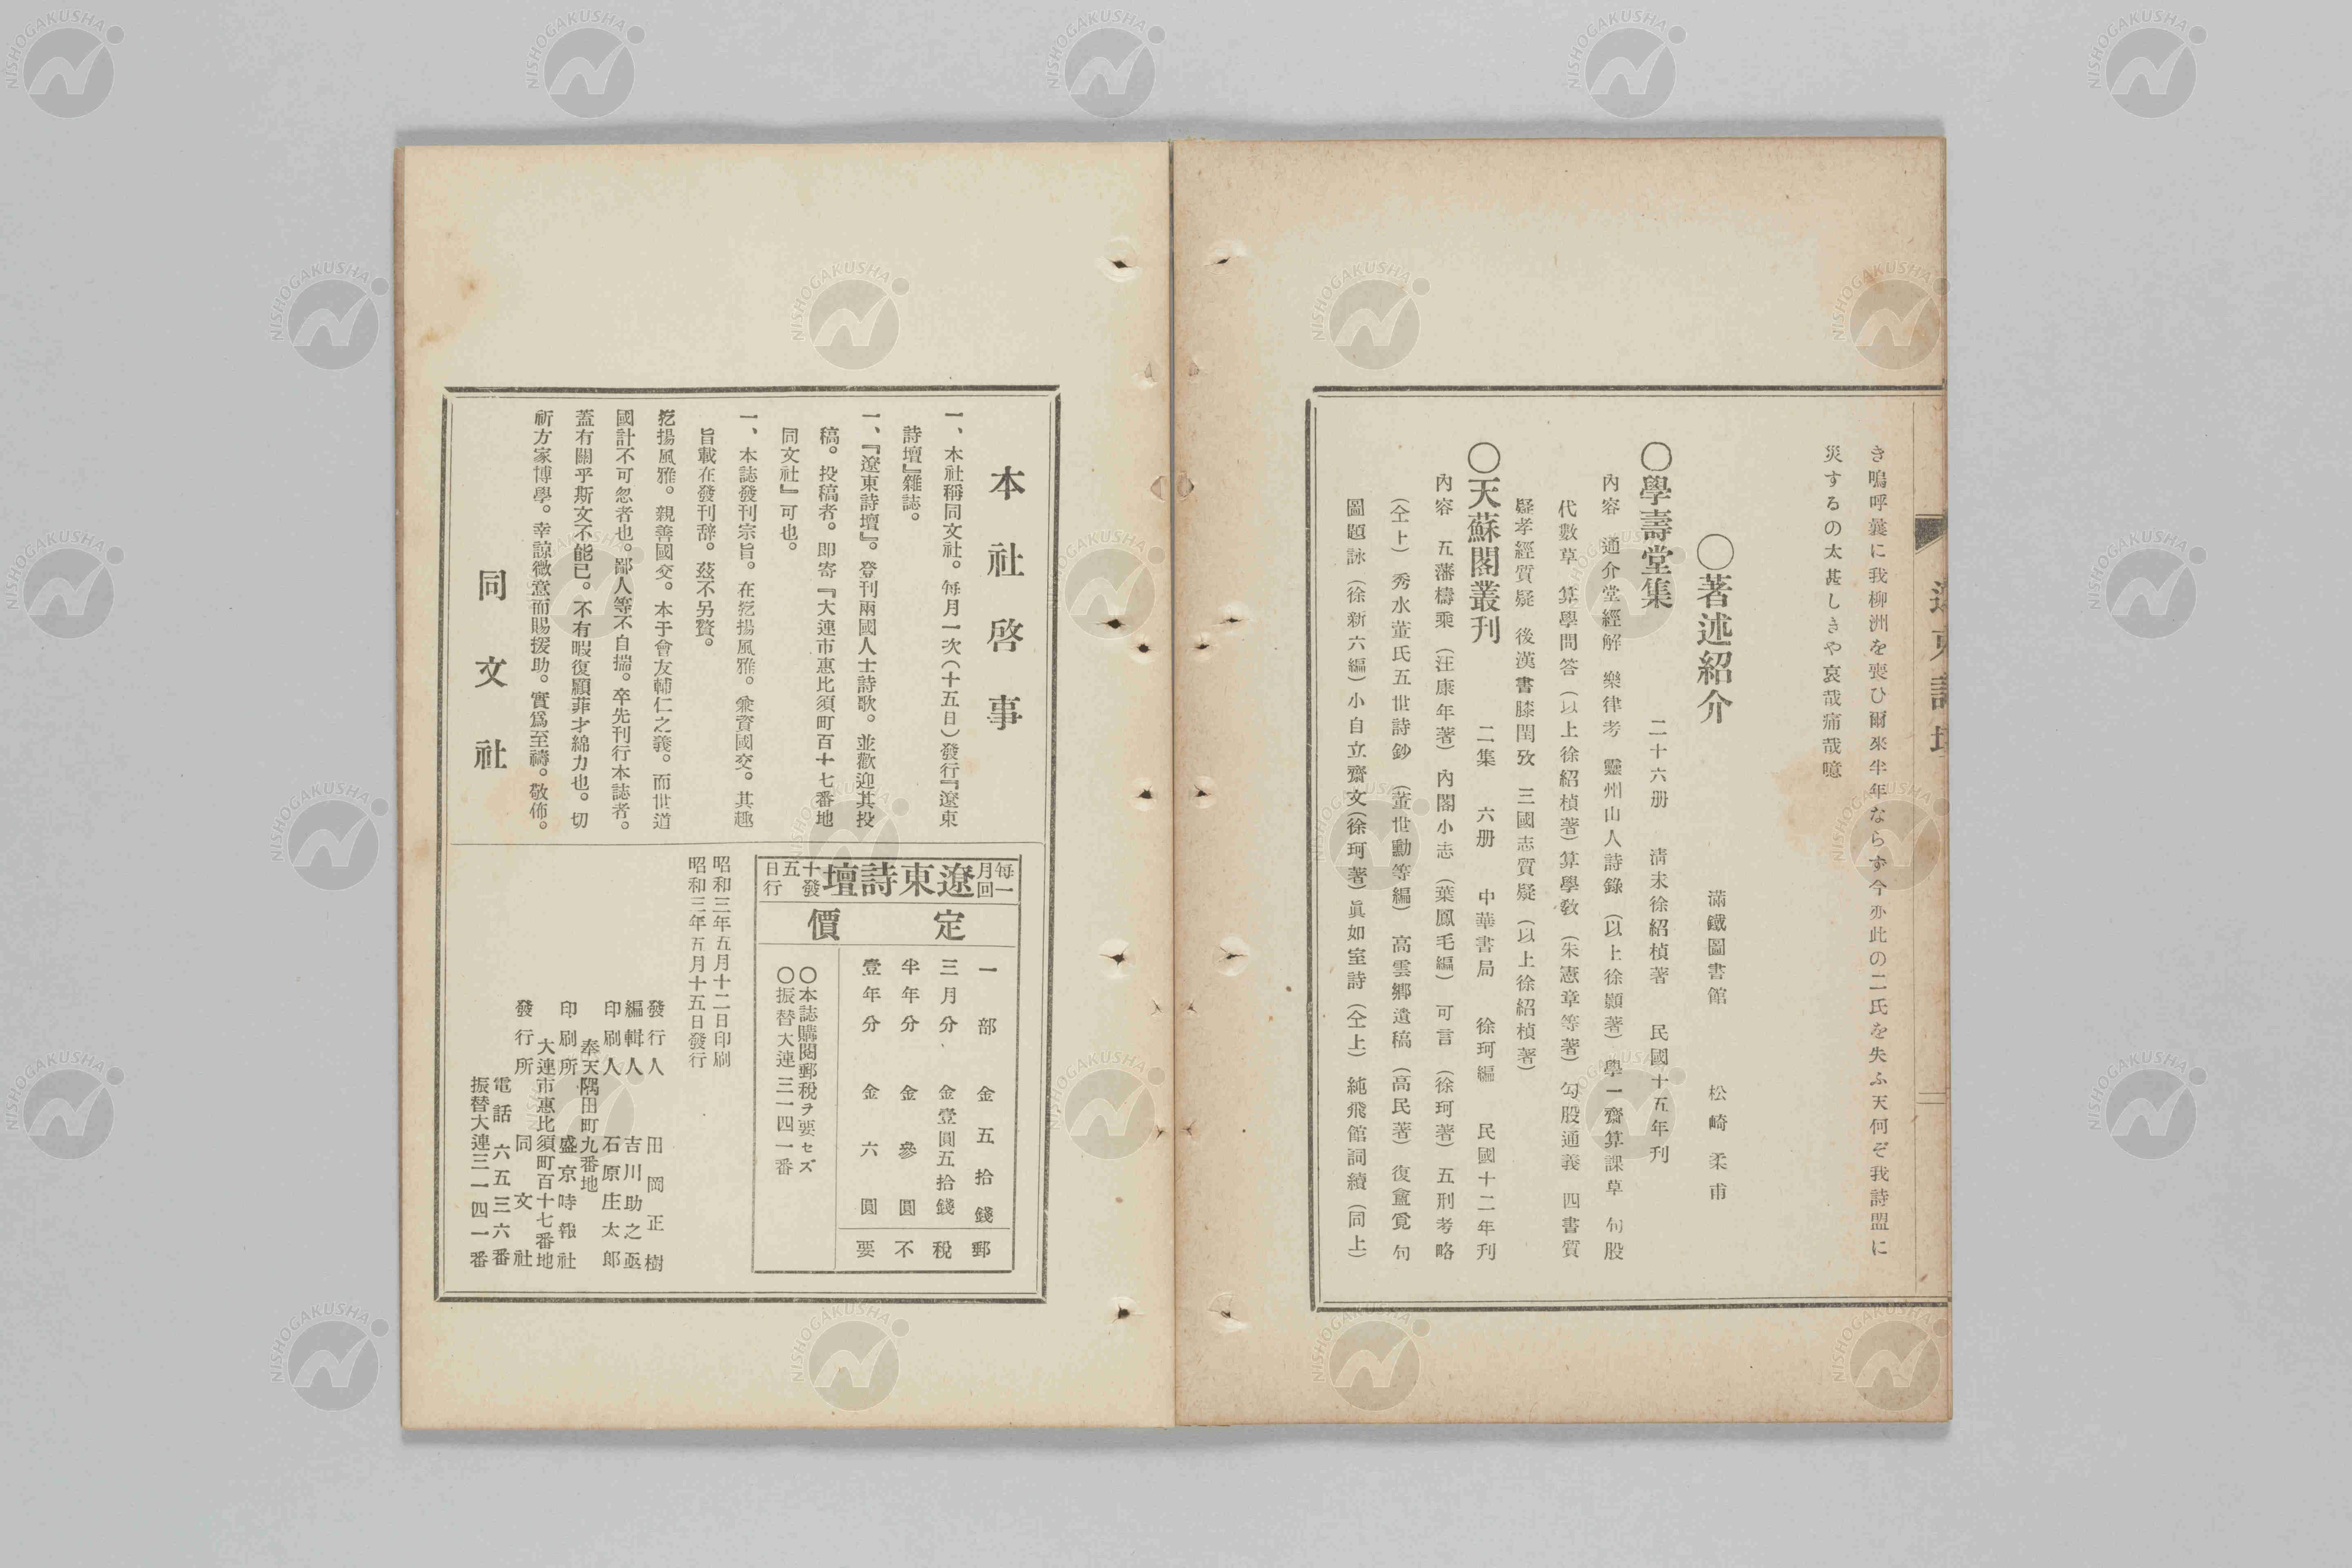 き嗚呼曩に我柳洲を喪ひ爾來半年ならず今亦此の二氏を失ふ天何ぞ我詩盟に
災するの太甚しきや哀哉痛哉噫
〇著述紹介
滿鐵圖書館 松崎柔甫
〇學壽堂集 二十六册 淸末徐紹楨著 民國十五年刊
內容 通介堂經解 樂律考 靈州山人詩錄(以上徐顥著)學一齋算課草 勾股
代數草 算學問答(以上徐紹楨著)算學敎(朱憲章等著) 勾股通義 四書質
疑孝經質疑 後漢書朥閏攷 三國志質疑(以上徐紹楨著)
〇天蘇閣叢刊 二集 六册 中華書局 徐珂編 民國十二年刊
內容 五藩檮乘(汪康年著)內閣小志(葉鳳毛編) 可言(徐珂著) 五刑考略
(仝上)秀水董氏五世詩鈔(董世勳等編) 高雲鄉遺稿(高民著) 復盦覓句
圖題詠(徐新六編)小自立齋文(徐珂著)眞如室詩(仝上)純飛館詞續(同上)
本社啓事
一、本社稱同文社。每月一次(十五日)發行『遼東
詩壇』雜誌。
一、『遼東詩壇』。登刊兩國人士詩歌。並歡迎其投
稿。投稿者。即寄『大連市惠比須町百十七番地
同文社』可也。
一、本誌發刊宗旨。在挖揚風雅。兼資國交。其趣
旨載在發刊辞。茲不另贅。
挖揚風雅。親善國交。本于會友輔仁之義。而世道
國計不可忽者也。鄙人等不自揣。卒先刊行本誌者。
蓋有關乎斯文不能已。不有暇復顧菲才綿力也。切
祈方家博學。幸諒微意而賜援助。實爲至禱。敬佈。
同文社
每月一回 遼東詩壇 十五日發行
定價
一部 金五拾錢
三月分 金壹圓五拾錢
半年分 金參圓
壹年分 金六圓
郵稅不要
〇本誌購閱郵稅ヲ要セズ
〇振替大連三一四一番
昭和三年五月十二日印刷
昭和三年五月十五日發行
發行人 田岡正樹
編輯人 吉川助之亟
印刷人 石原庄太郎
奉天隅田町九番地
印刷所 盛京時報社
大連市惠比須町百十七番地
發行所 同文社
電話 六五三六番
振替大連三一四一番
NISHOGAKUSHA